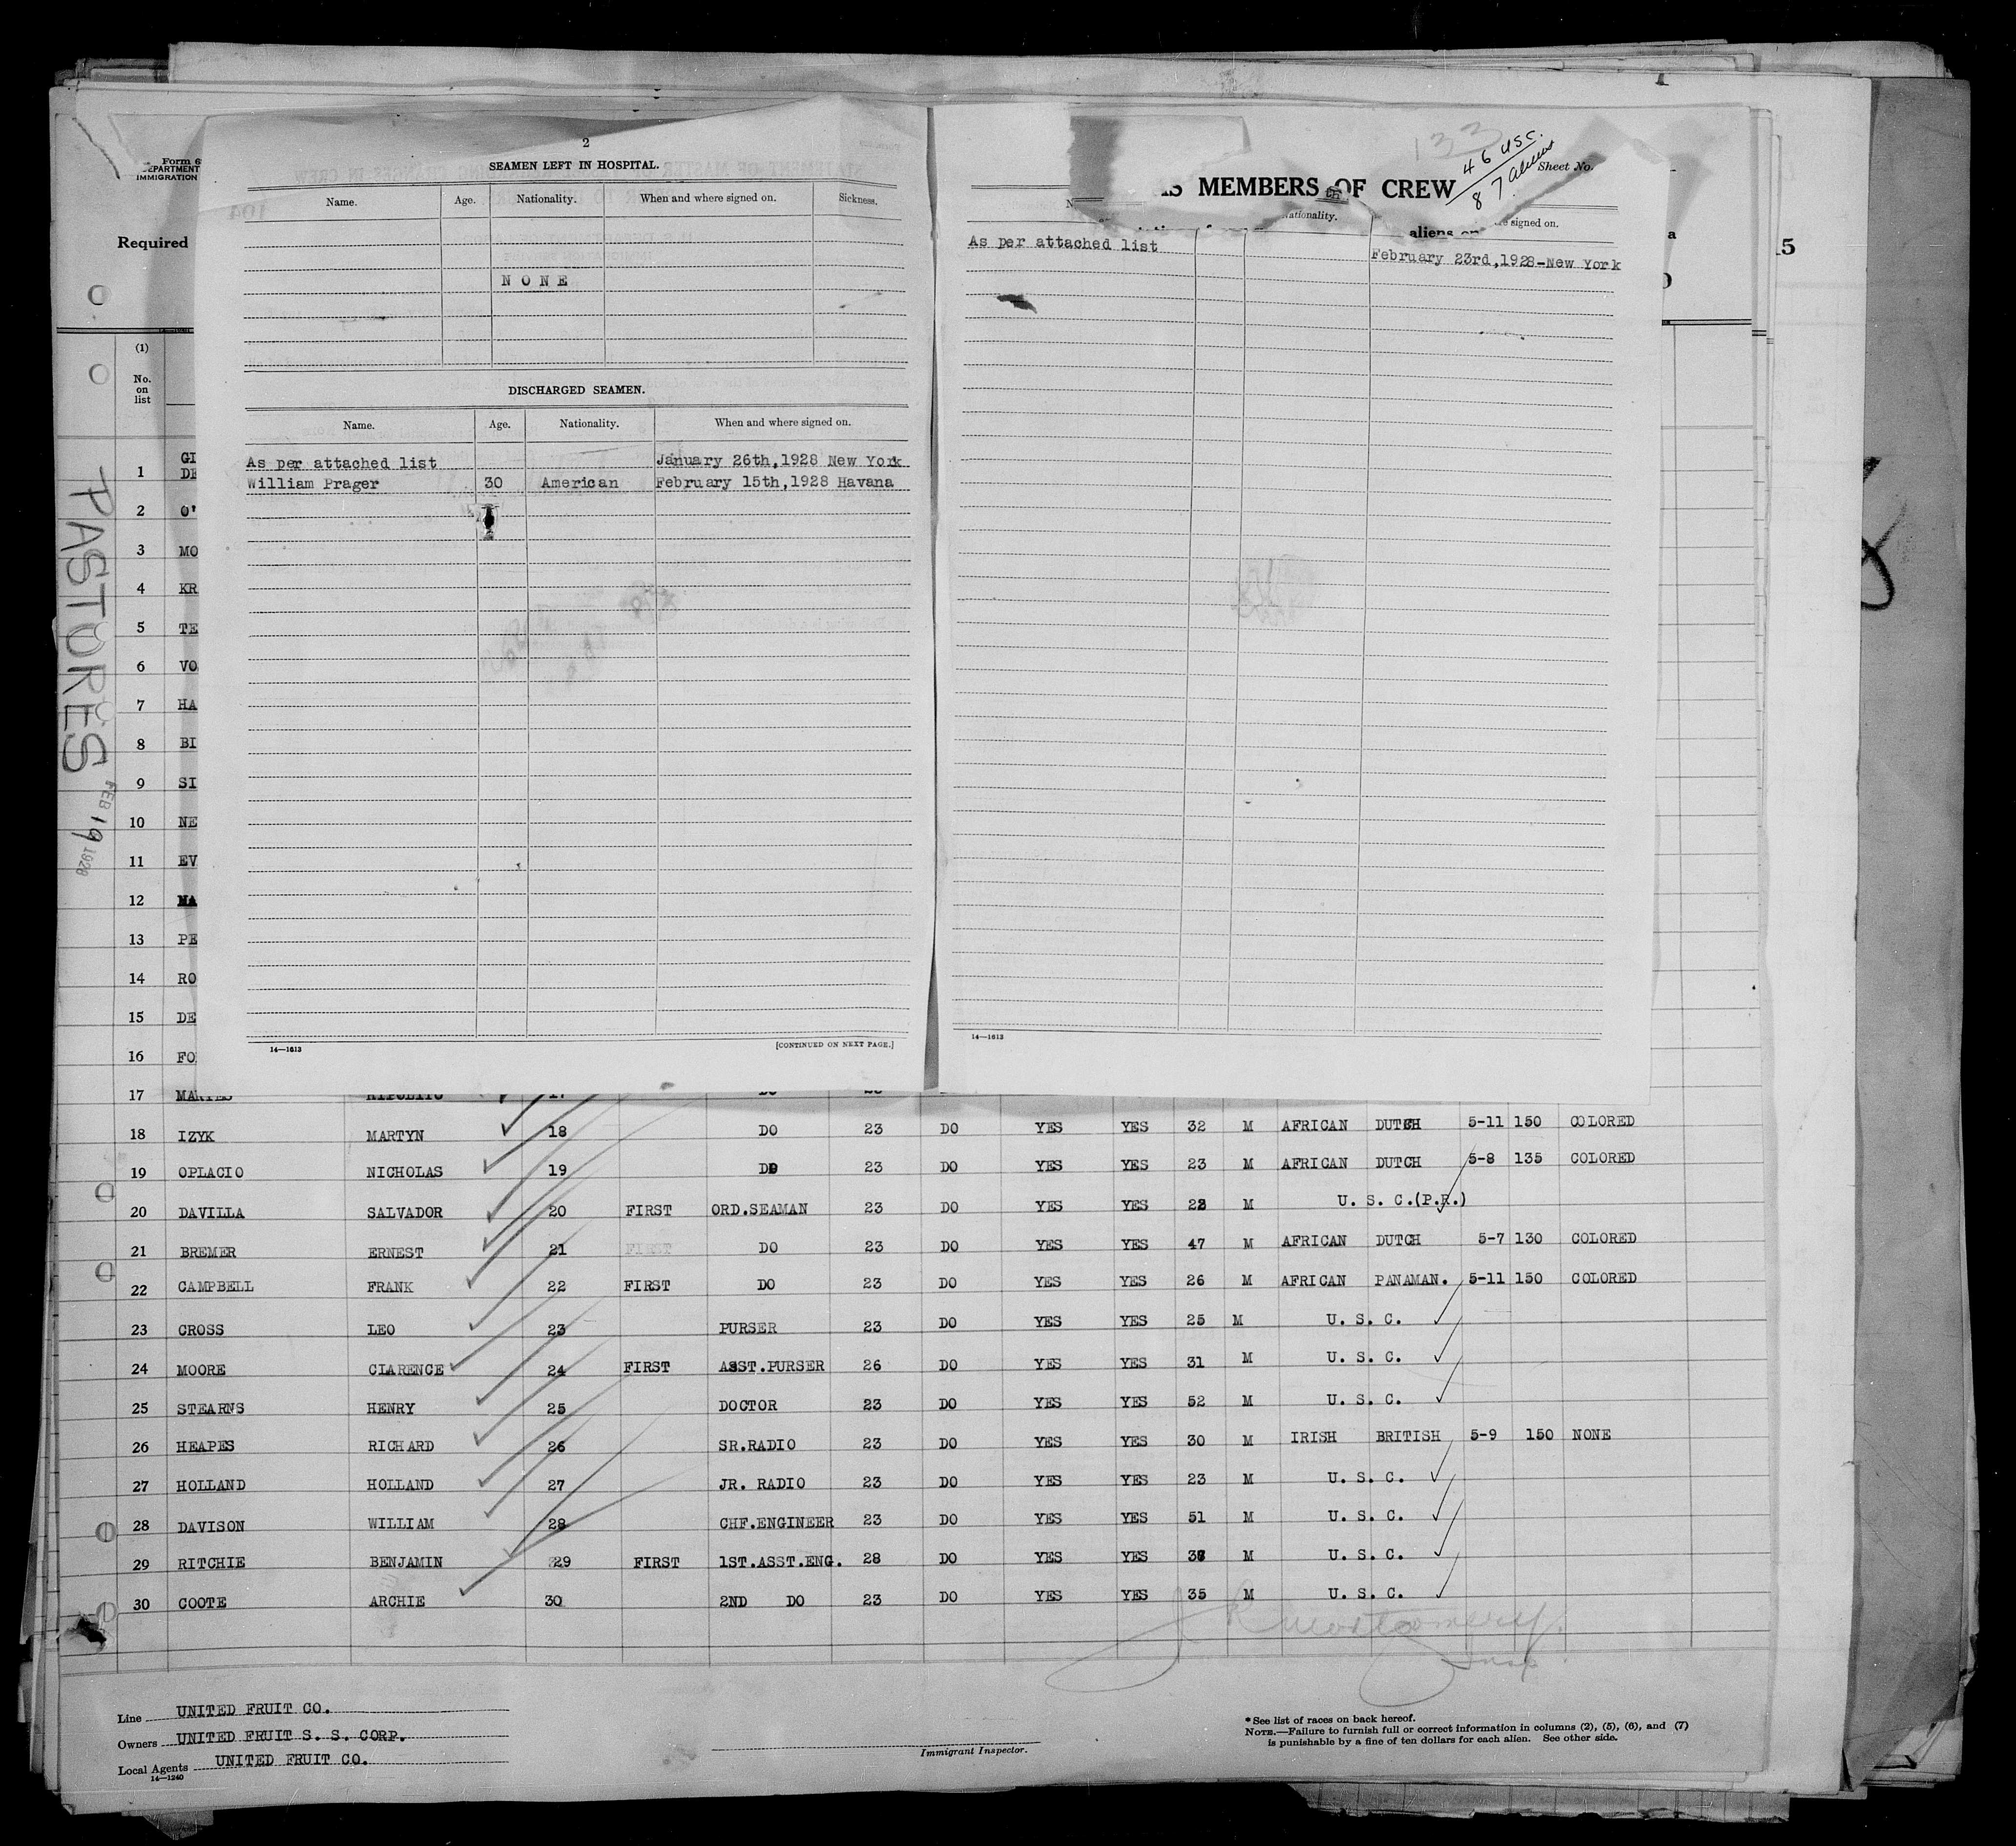 2
SEAMEN LEFT IN HOSPITAL.
Name. Age. Nationality. When and where signed on. Sickness.
NONE
DISCHARGED SEAMEN.
Name. Age. Nationality. When and where signed on.
As per attached list January 26th,1928 New York
William Prager 30 American February 15th,1928 Havana
14—1613 [CONTINUED ON NEXT PAGE.]
133
46 USC.
87 aliens
Sheet No.
MEMBERS OF CREW
Nationality. signed on.
aliens on a
As per attached list
February 23rd,1928-New York
14—1613
15
Form 6
DEPARTMENT
IMMIGRATION
Required
(1)
No.
on
list
PASTORES
FEB 19 1928
1 GI
DE
2 O'
3 MO
4 KR
5 TE
6 VO
7 HA
8 BI
9 SI
10 NE
11 EV
12 MA
13 PE
14 RO
15 DE
16 FO
17 HIPOLITO 17 DO
18 IZYK MARTYN 18 DO 23 DO YES YES 32 M AFRICAN DUTCH 5-11 150 COLORED
19 OPLACIO NICHOLAS 19 DO 23 DO YES YES 23 M AFRICAN DUTCH 5-8 135 COLORED
20 DAVILLA SALVADOR 20 FIRST ORD.SEAMAN 23 DO YES YES M U. S. C.(P.R.)
21 BREMER ERNEST 21 FIRST DO 23 DO YES YES 47 M AFRICAN DUTCH 5-7 130 COLORED
22 CAMPBELL FRANK 22 FIRST DO 23 DO YES YES 26 M AFRICAN PANAMAN. 5-11 150 COLORED
23 CROSS LEO 23 PURSER 23 DO YES YES 25 M U. S. C.
24 MOORE CLARENCE 24 FIRST ASST.PURSER 26 DO YES YES 31 M U. S. C.
25 STEARNS HENRY 25 DOCTOR 23 DO YES YES 52 M U. S. C.
26 HEAPES RICHARD 26 SR.RADIO 23 DO YES YES 30 M IRISH BRITISH 5-9 150 NONE
27 HOLLAND HOLLAND 27 JR. RADIO 23 DO YES YES 23 M U. S. C.
28 DAVISON WILLIAM 28 CHF.ENGINEER 23 DO YES YES 51 M U. S. C.
29 RITCHIE BENJAMIN 29 FIRST 1ST.ASST.ENG. 28 DO YES YES M U. S. C.
30 COOTE ARCHIE 30 2ND DO 23 DO YES YES 35 M U. S. C.
Montgomery
Insp.
Line UNITED FRUIT CO.
Owners UNITED FRUIT S. S. CORP.
Local Agents UNITED FRUIT CO.
14—1240
Immigrant Inspector.
*See list of races on back hereof.
NOTE.—Failure to furnish full or correct information in columns (2), (5), (6), and (7)
is punishable by a fine of ten dollars for each alien. See other side.